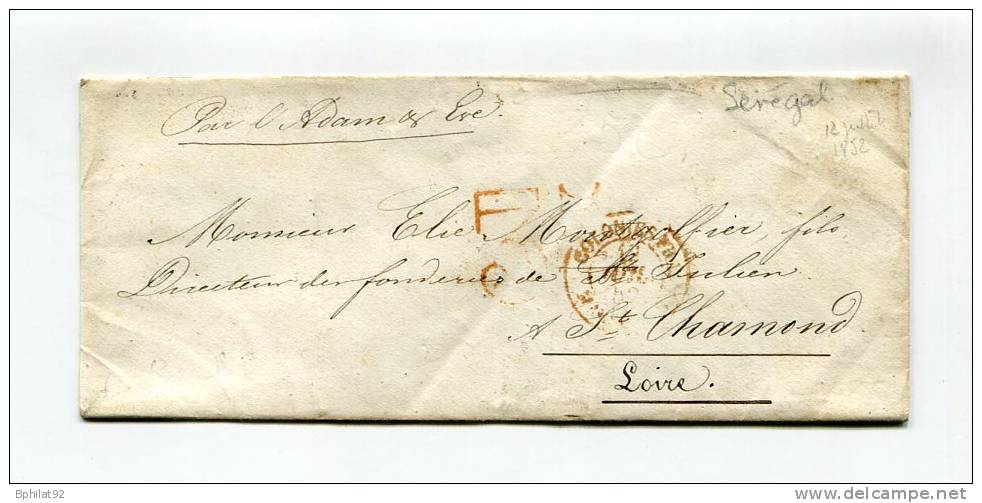 Sénégal
12 juillet
1852
Par l'Adam & Eve.
Monsieur Elie Montgolfier fils
Directeur des fonderies de St Julien
A St Chamond
Loire.
Bphilat92
www.delcampe.net